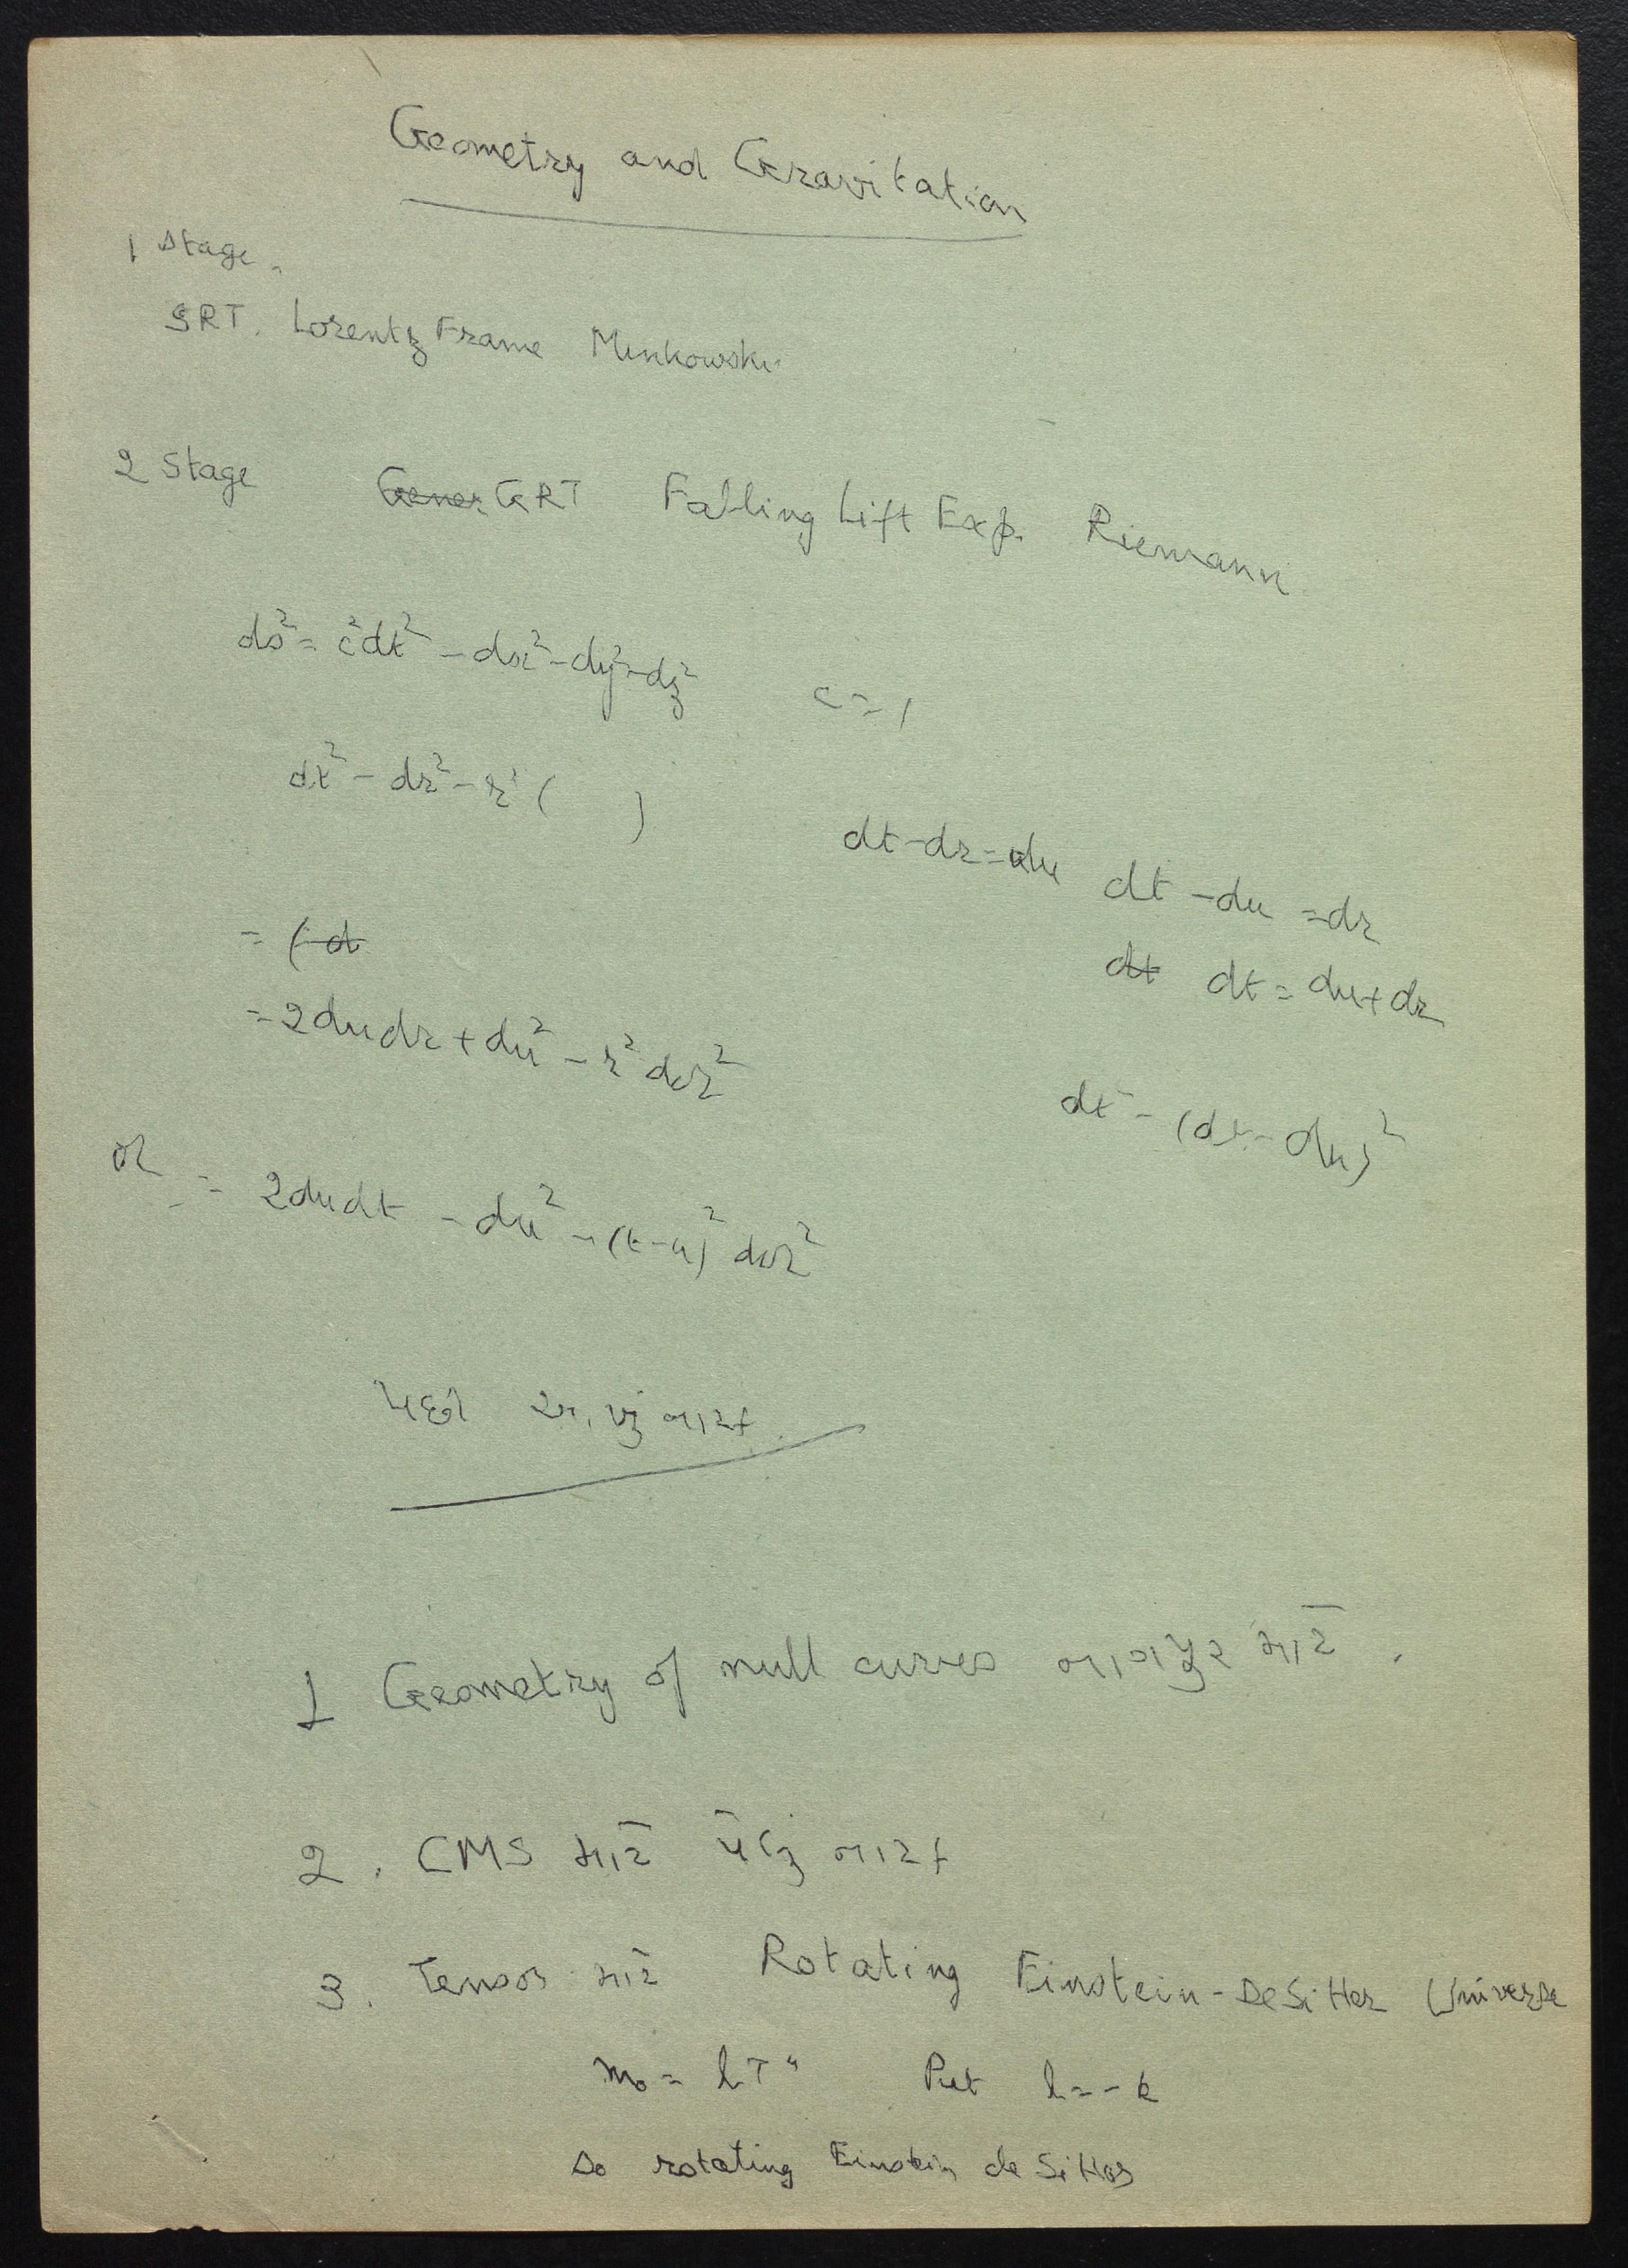 Geometry and Gravitation
1 Stage.
SRT. Lorentz Frame Minkowski
2 Stage Gener GRT Falling Lift Exp. Riemann
ds² = c²dt² - dx² - dy² - dz² c = 1
dt² - dr² - r² ( )
dt - dr = du dt - du = dr
= (-d
dt dt = du + dr
= 2dudr + du² - r²dΩ²
dt² - (dt - du)²
or = 2dudt - du² - (t-u)² dΩ²
1 Geometry of null curves
2. CMS
3. Tensor Rotating Einstein-DeSitter Universe
Put l = -k
So rotating Einstein de Sitter